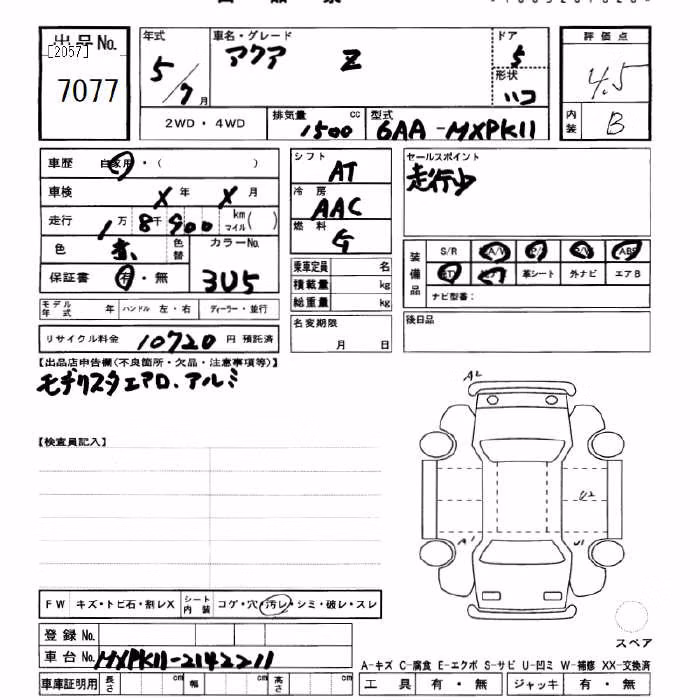 出品No.
[2057]
7077
年式
5/7月
車名・グレード
アクア Z
ドア
5
形状
ハコ
評価点
4.5
内装
B
2WD・4WD
排気量 1500 cc
型式 6AA-MXPK11
車歴 自家用・( )
車検 X年 X月
走行 1万8千900 km マイル( )
色 赤 色替
カラーNo. 3U5
保証書 有・無
モデル年式 年 ハンドル 左・右 ディーラー・並行
リサイクル料金 10720 円 預託済
シフト AT
冷房 AAC
燃料 G
乗車定員 名
積載量 kg
総重量 kg
名変期限
月 日
セールスポイント
走行少
装備品
S/R A/W P/S P/W ABS
革シート 外ナビ エアB
ナビ型番:
後日品
【出品店申告欄(不良箇所・欠品・注意事項等)】
モデリスタエアロ、アルミ
【検査員記入】
A2
U2
A1
U1
スペア
FW キズ・トビ石・割レX シート内装 コゲ・穴・汚レ・シミ・破レ・スレ
登録No.
車台No. MXPK11-2142211
車庫証明用 長さ cm 幅 cm 高さ cm
A-キズ C-腐食 E-エクボ S-サビ U-凹ミ W-補修 XX-交換済
工具 有・無 ジャッキ 有・無